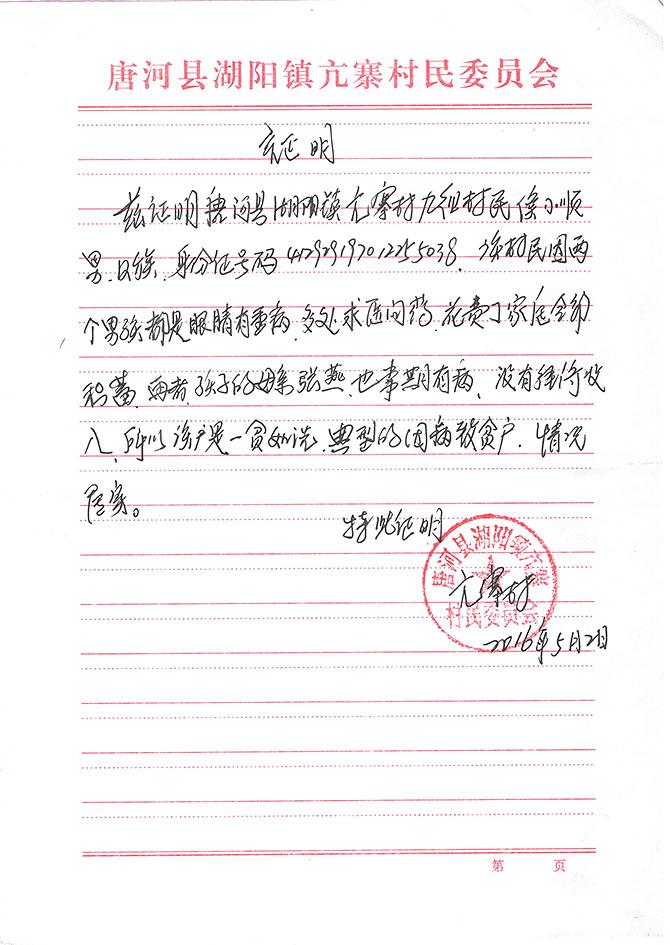 唐河县湖阳镇亢寨村民委员会
证明
兹证明唐河县湖阳镇亢寨村九组村民侯小顺
男、汉族、身份证号码 412929197012255038、该村民因两
个男孩都是眼睛有重病、多处求医问药、花费了家庭全部
积蓄、两者孩子的母亲张燕、也常期有病、没有经济收
入、所以该户是一贫如洗、典型的因病致贫户、情况
居实。
特此证明
唐河县湖阳镇亢寨
村民委员会
亢寨村
2016年5月2日
第 页